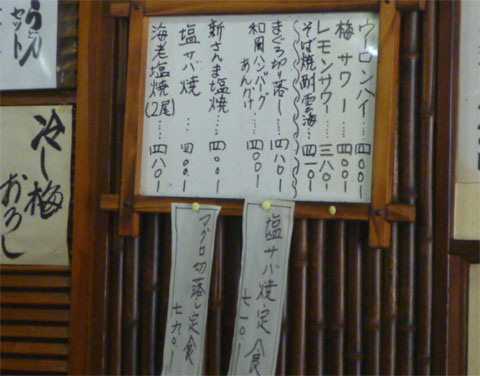 ウーロンハイ…四〇〇ー
梅サワー……四〇〇ー
レモンサワー……三八〇ー
そば焼酎雲海…四〇〇ー
まぐろ切り落し…四八〇ー
和風ハンバーグ
あんかけ
四〇〇ー
新さんま塩焼…四〇〇ー
塩サバ焼…四〇〇ー
海老塩焼(2尾)……四八〇ー
塩サバ焼定食
七一〇ー
マグロ切落し定食
七九〇ー
セット
冷し梅
おろし